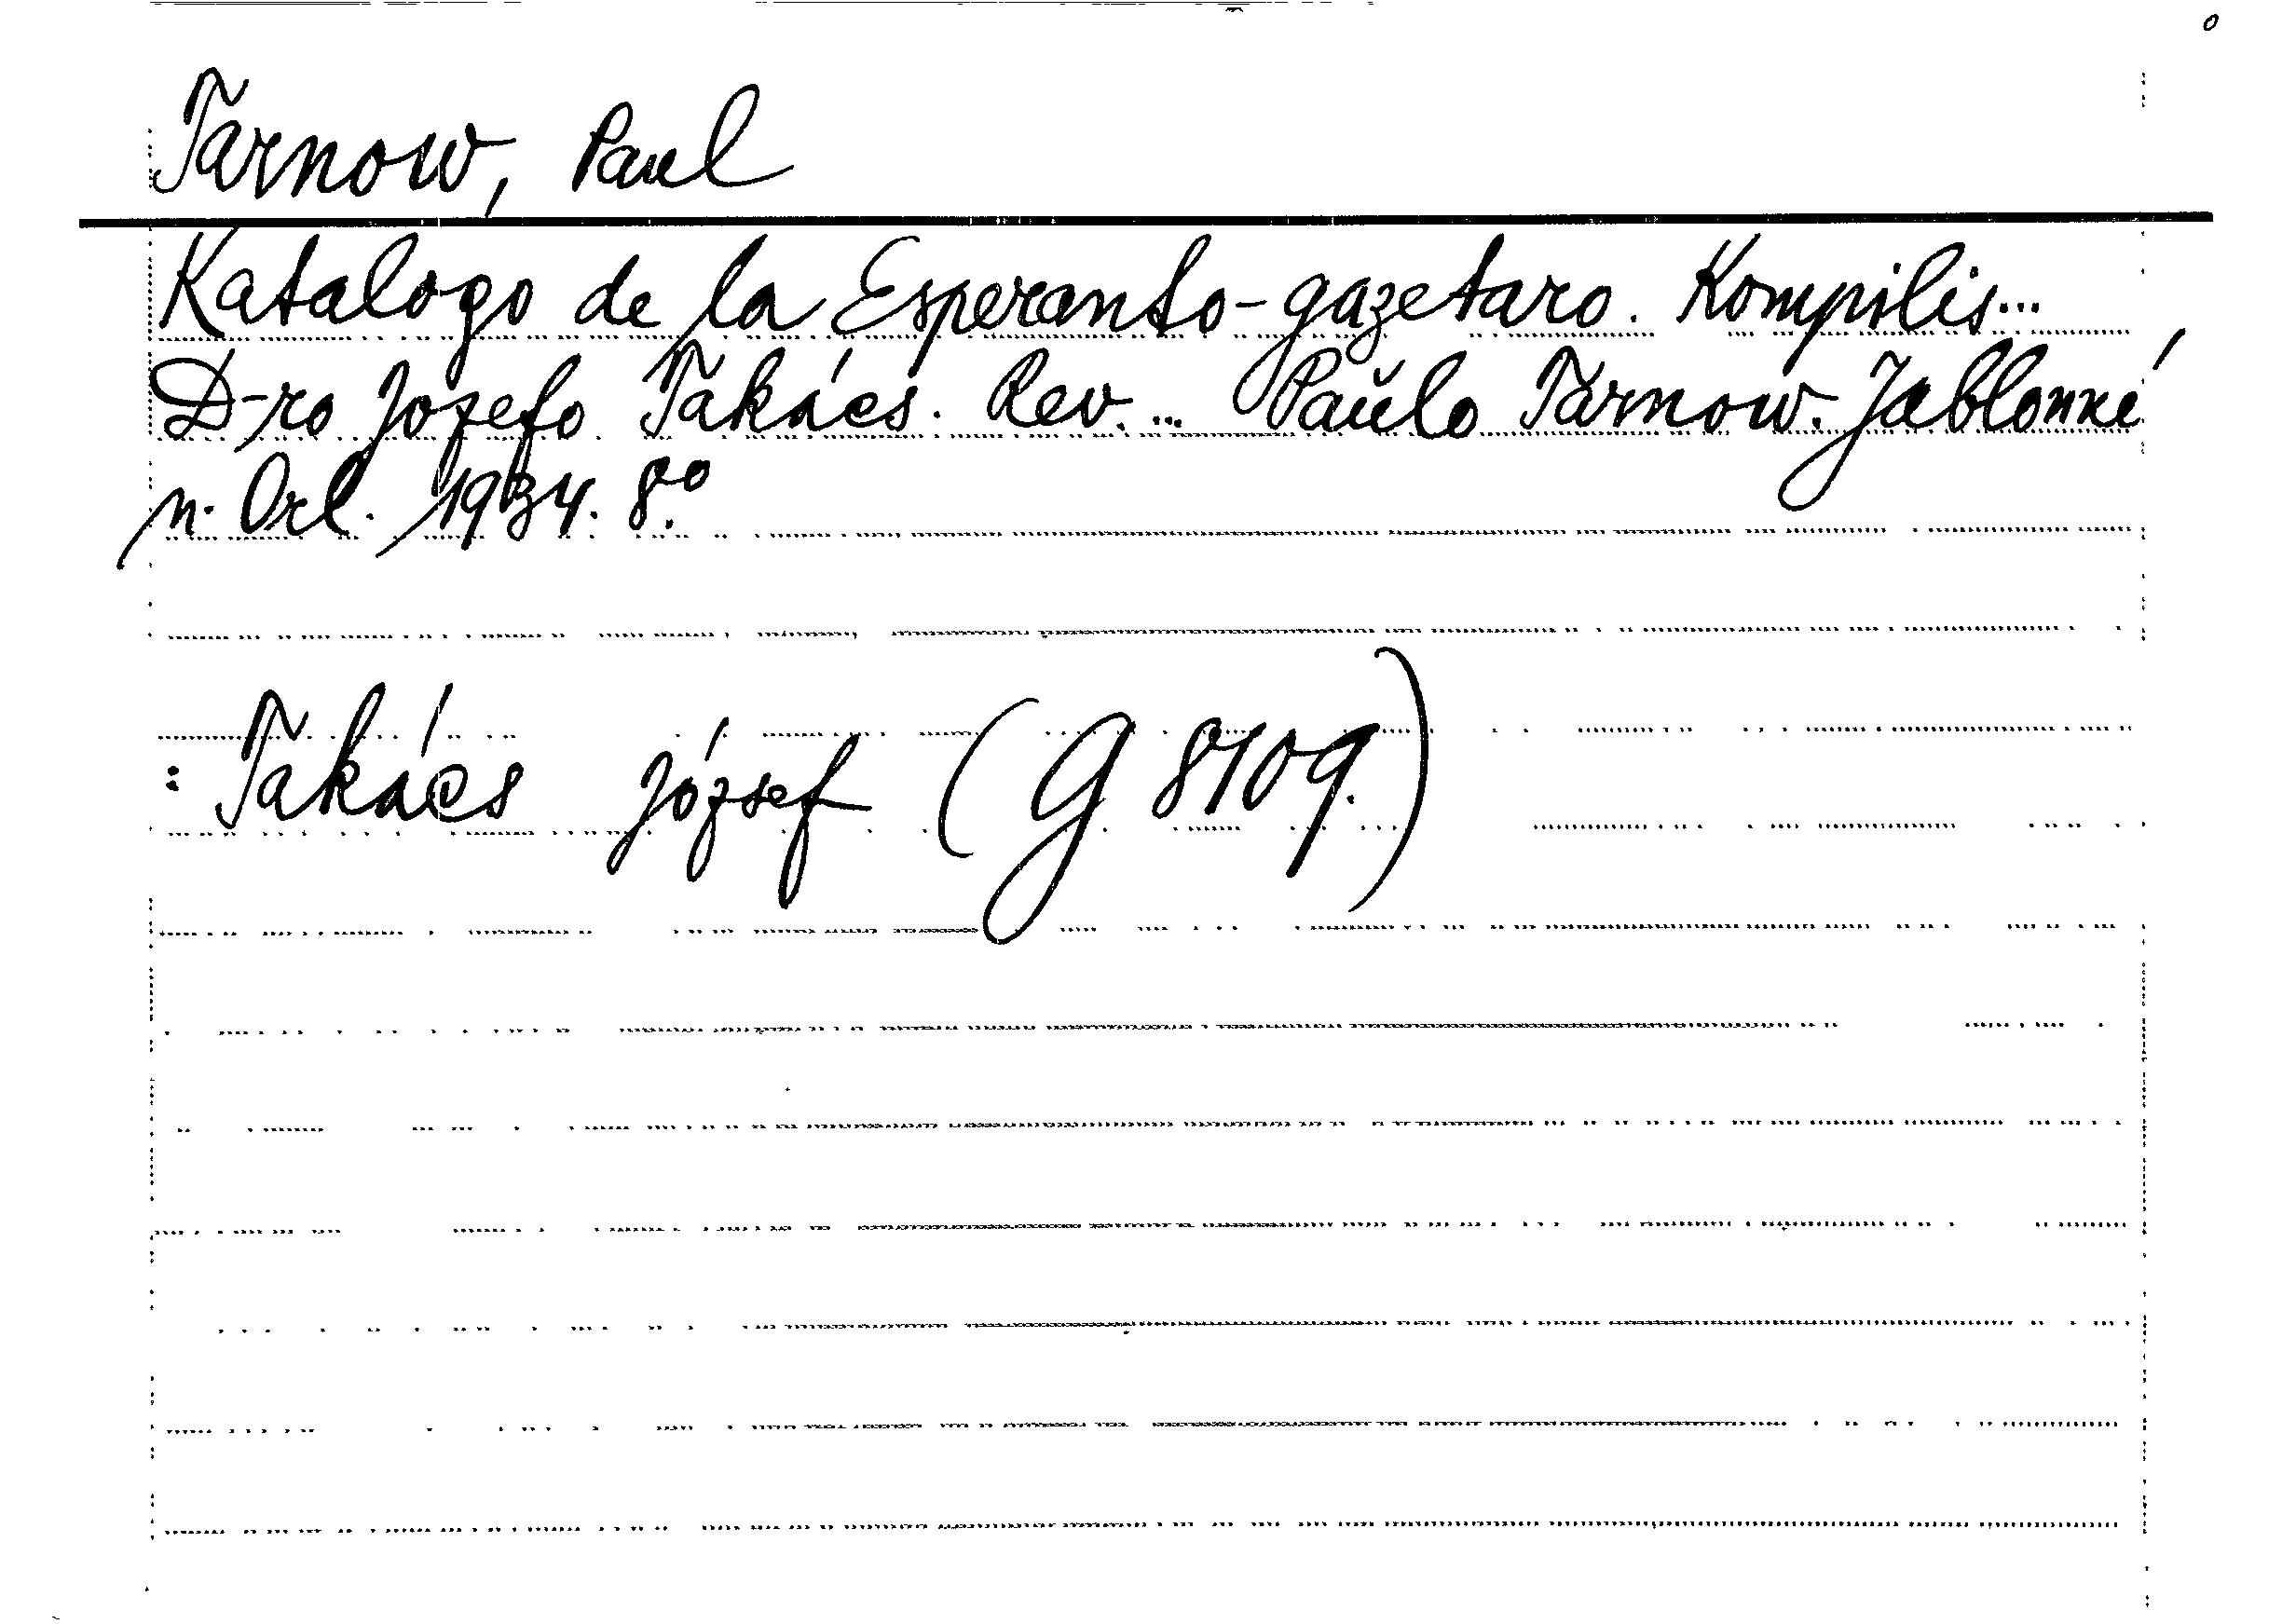 Tarnow, Paul
Katalogo de la Esperanto-gazetaro. Kompilis...
D-ro Jozefo Takács. Rev. ... Paŭlo Tarnow. Jablonné
n. Orl. 1934. 8°.
: Takács József (G 8109.)